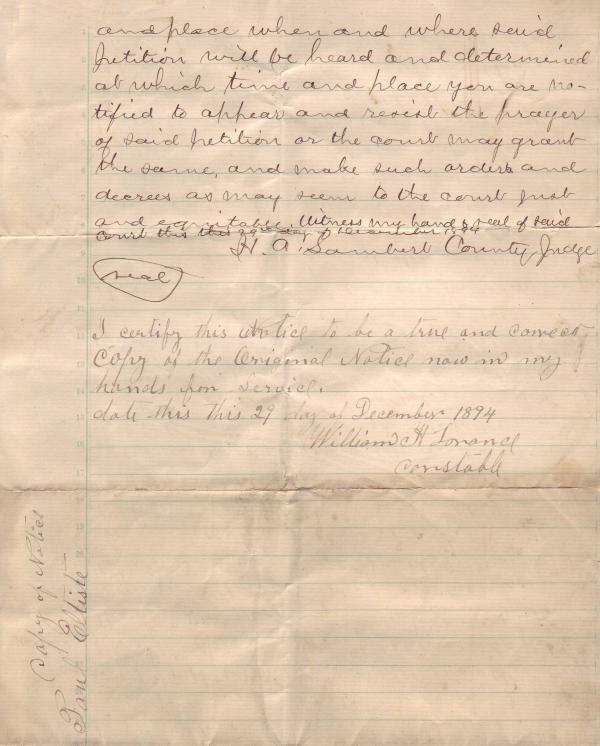 and place when and where said
petition will be heard and determined
at which time and place you are no-
tified to appear and resist the prayer
of said petition or the court may grant
the same, and make such orders and
decrees as may seem to the court just
and equitable. Witness my hand & seal of said
court this this 29th day of December 1894
H. A. Lambert County Judge
seal
I certify this Notice to be a true and correct
Copy of the Original Notice now in my
hands for Service.
date this this 29 day of December 1894
William H Lorance
constable
Copy of Notice